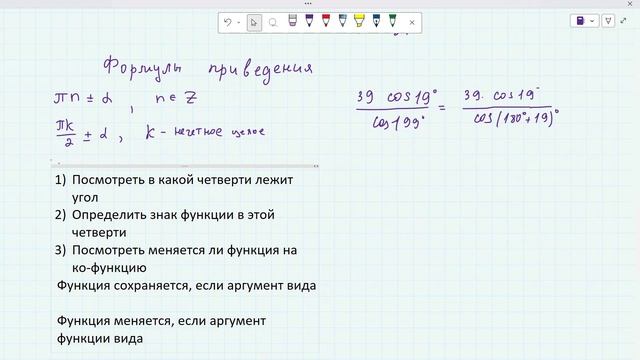 Формулы приведения
πn ± α, n ∈ Z
πk/2 ± α, k - нечетное целое
39 cos19°/cos199° = 39 · cos19°/cos(180°+19)°
1) Посмотреть в какой четверти лежит
угол
2) Определить знак функции в этой
четверти
3) Посмотреть меняется ли функция на
ко-функцию
Функция сохраняется, если аргумент вида
Функция меняется, если аргумент
функции вида